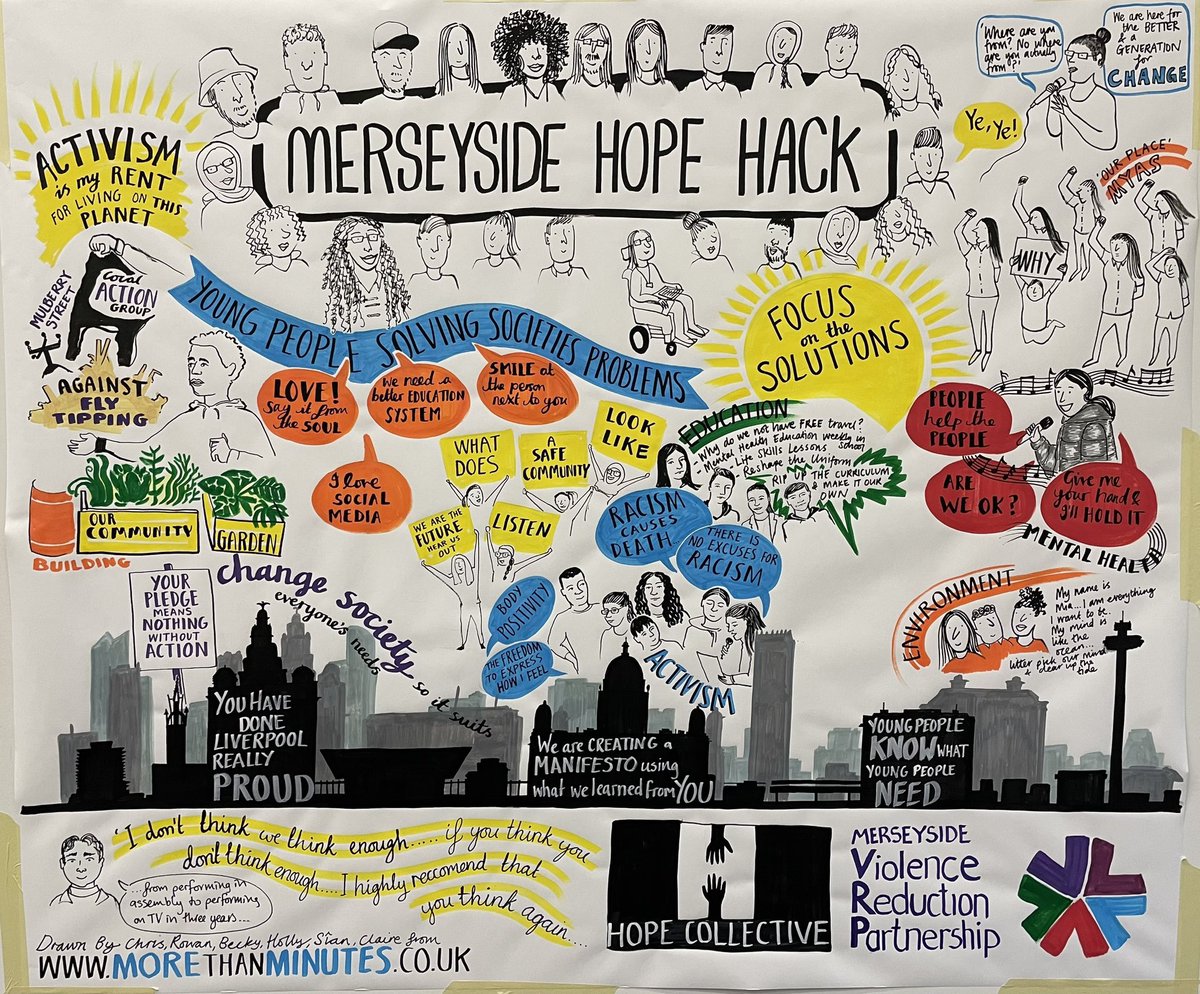 MERSEYSIDE HOPE HACK
'Where are you
from? No where
are you actually
from?'
We are here for
the BETTER
& a
GENERATION
for
CHANGE
Ye, Ye!
ACTIVISM
is my RENT
FOR LIVING ON THIS
PLANET
'OUR PLACE'
MYAS
WHY
MULBERRY
STREET
Local
ACTION
GROUP
AGAINST
FLY
TIPPING
YOUNG PEOPLE SOLVING SOCIETIES PROBLEMS
FOCUS
on the
SOLUTIONS
LOVE!
Say it from
the SOUL
We need a
better EDUCATION
SYSTEM
SMILE at
the person
next to you
I love
SOCIAL
MEDIA
WHAT
DOES
A
SAFE
COMMUNITY
LOOK
LIKE
WE ARE THE
FUTURE
HEAR US
OUT
LISTEN
EDUCATION
- Why do we not have FREE travel?
- Mental Health Education weekly in
School
- Life Skills Lessons
- Reshape the Uniform
RIP UP THE CURRICULUM
& MAKE IT OUR
OWN
PEOPLE
help the
PEOPLE
ARE
WE OK?
Give me
your hand &
I'll HOLD IT
MENTAL HEALTH
OUR
COMMUNITY
GARDEN
BUILDING
RACISM
CAUSES
DEATH...
THERE IS
NO EXCUSES FOR
RACISM
BODY
POSITIVITY
THE FREEDOM
TO EXPRESS
HOW I FEEL
ACTIVISM
YOUR
PLEDGE
MEANS
NOTHING
WITHOUT
ACTION
change society
so it suits
everyone's needs
ENVIRONMENT
My name is
Mia... I am everything
I want to be.
My mind is
like the
ocean...
litter pick our mind
& clear up the
tide
YOU HAVE
DONE
LIVERPOOL
REALLY
PROUD
We are CREATING a
MANIFESTO using
what we learned from YOU
YOUNG PEOPLE
KNOW WHAT
YOUNG PEOPLE
NEED
'I don't think we think enough..... if you think you
don't think enough.... I highly reccomend that
you think again....
...from performing in
assembly to performing
on TV in three years...
HOPE COLLECTIVE
MERSEYSIDE
Violence
Reduction
Partnership
Drawn By Chris, Rowan, Becky, Holly, Sîan, Claire from
WWW.MORETHANMINUTES.CO.UK